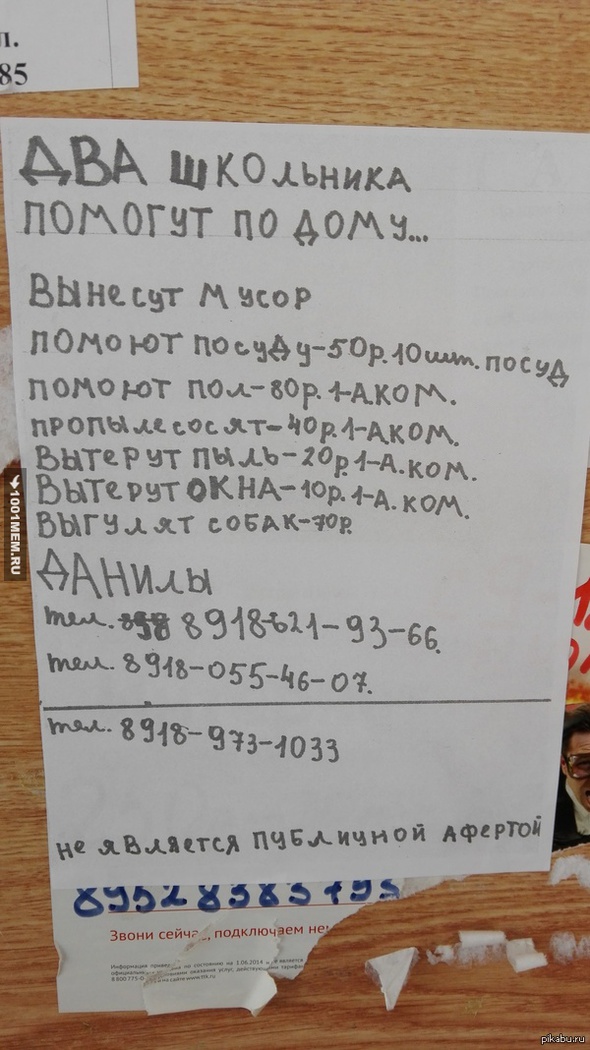 л.
85
ДВА ШКОЛЬНИКА
ПОМОГУТ ПО ДОМУ...
ВЫНЕСУТ МУСОР
ПОМОЮТ ПОСУДУ-50р.10шт.ПОСУД
ПОМОЮТ ПОЛ-80р.1-АКОМ.
ПРОПЫЛЕСОСЯТ-40р.1-АКОМ.
ВЫТЕРУТ ПЫЛЬ-20р.1-А.КОМ.
ВЫТЕРУТ ОКНА-10р.1-А.КОМ.
ВЫГУЛЯТ СОБАК-70р.
ДАНИЛЫ
тел. 8918-621-93-66.
тел. 8918-055-46-07.
тел. 8918-973-1033
НЕ ЯВЛЯЕТСЯ ПУБЛИЧНОЙ АФЕРТОЙ
Звони сейчас, подключаем
Информация приведена по состоянию на 1.06.2014
1001MEM.RU
pikabu.ru